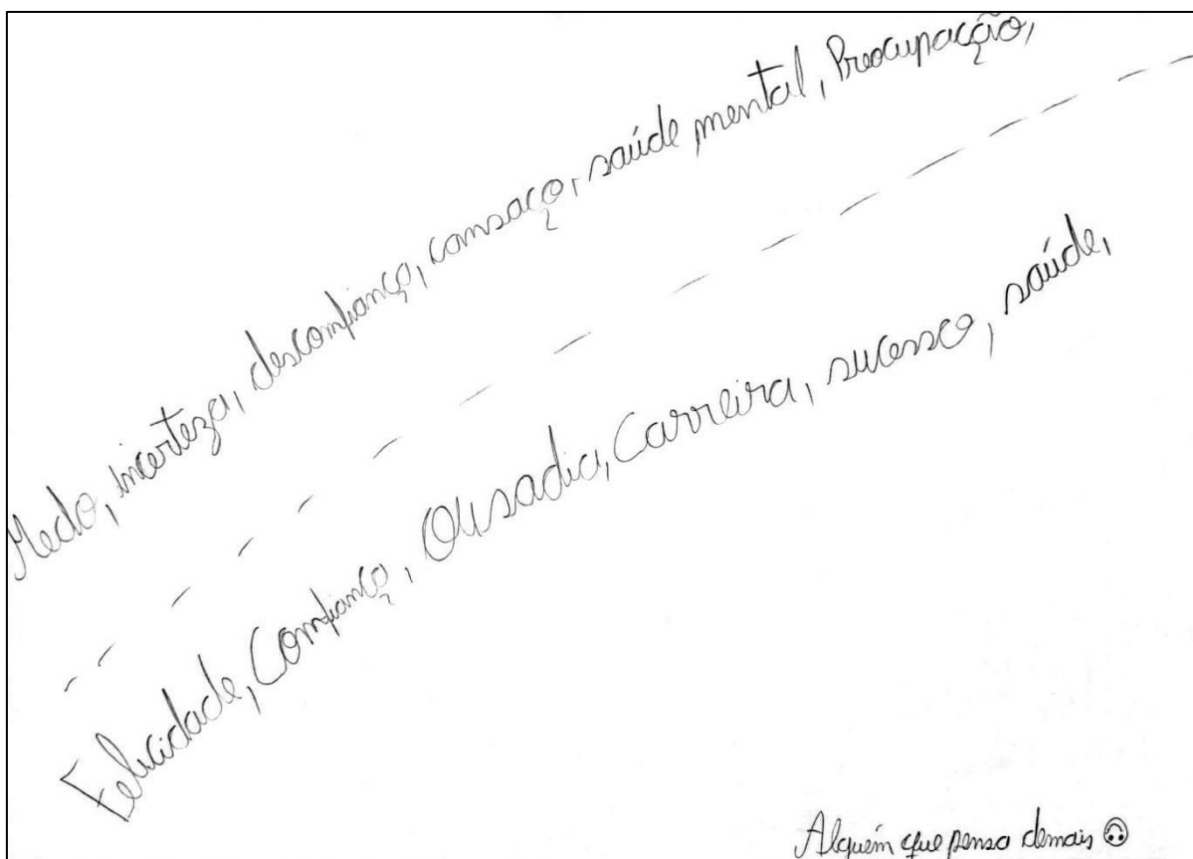 Medo, incerteza, desconfiança, cansaço, saúde mental, Preocupação,
Felicidade, Confiança, Ousadia, Carreira, sucesso, saúde,
Alguém que pensa demais 🙃